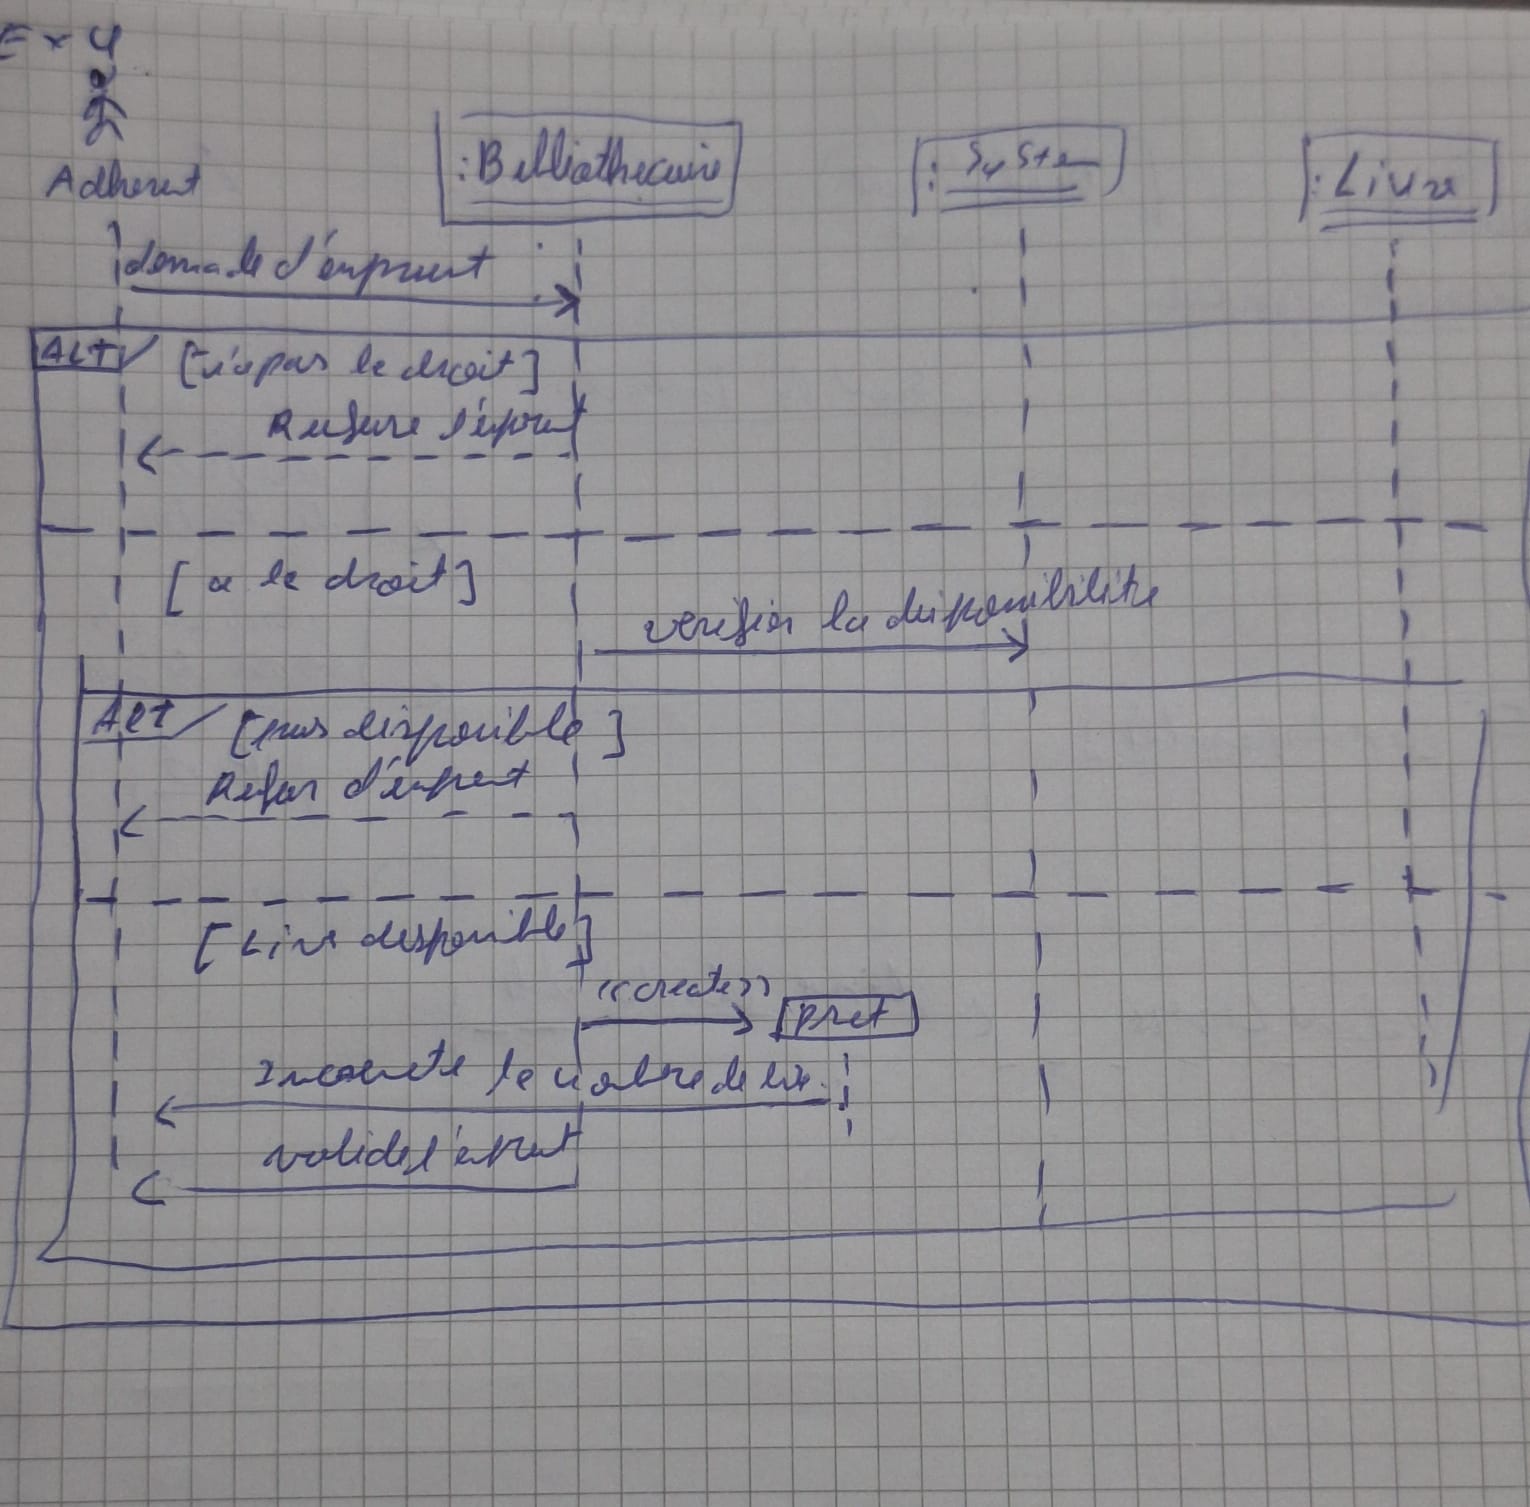 Ex 4
Adherent
:Bibliothecaire
:System
:Livre
demande d'emprunt
ALT
[n'a pas le droit]
Refuse l'emprunt
[a le droit]
verifier la disponibilite
Alt
[pas disponible]
Refus d'emprunt
[Livre disponible]
<<create>>
pret
le nombre de
valider l'emprunt